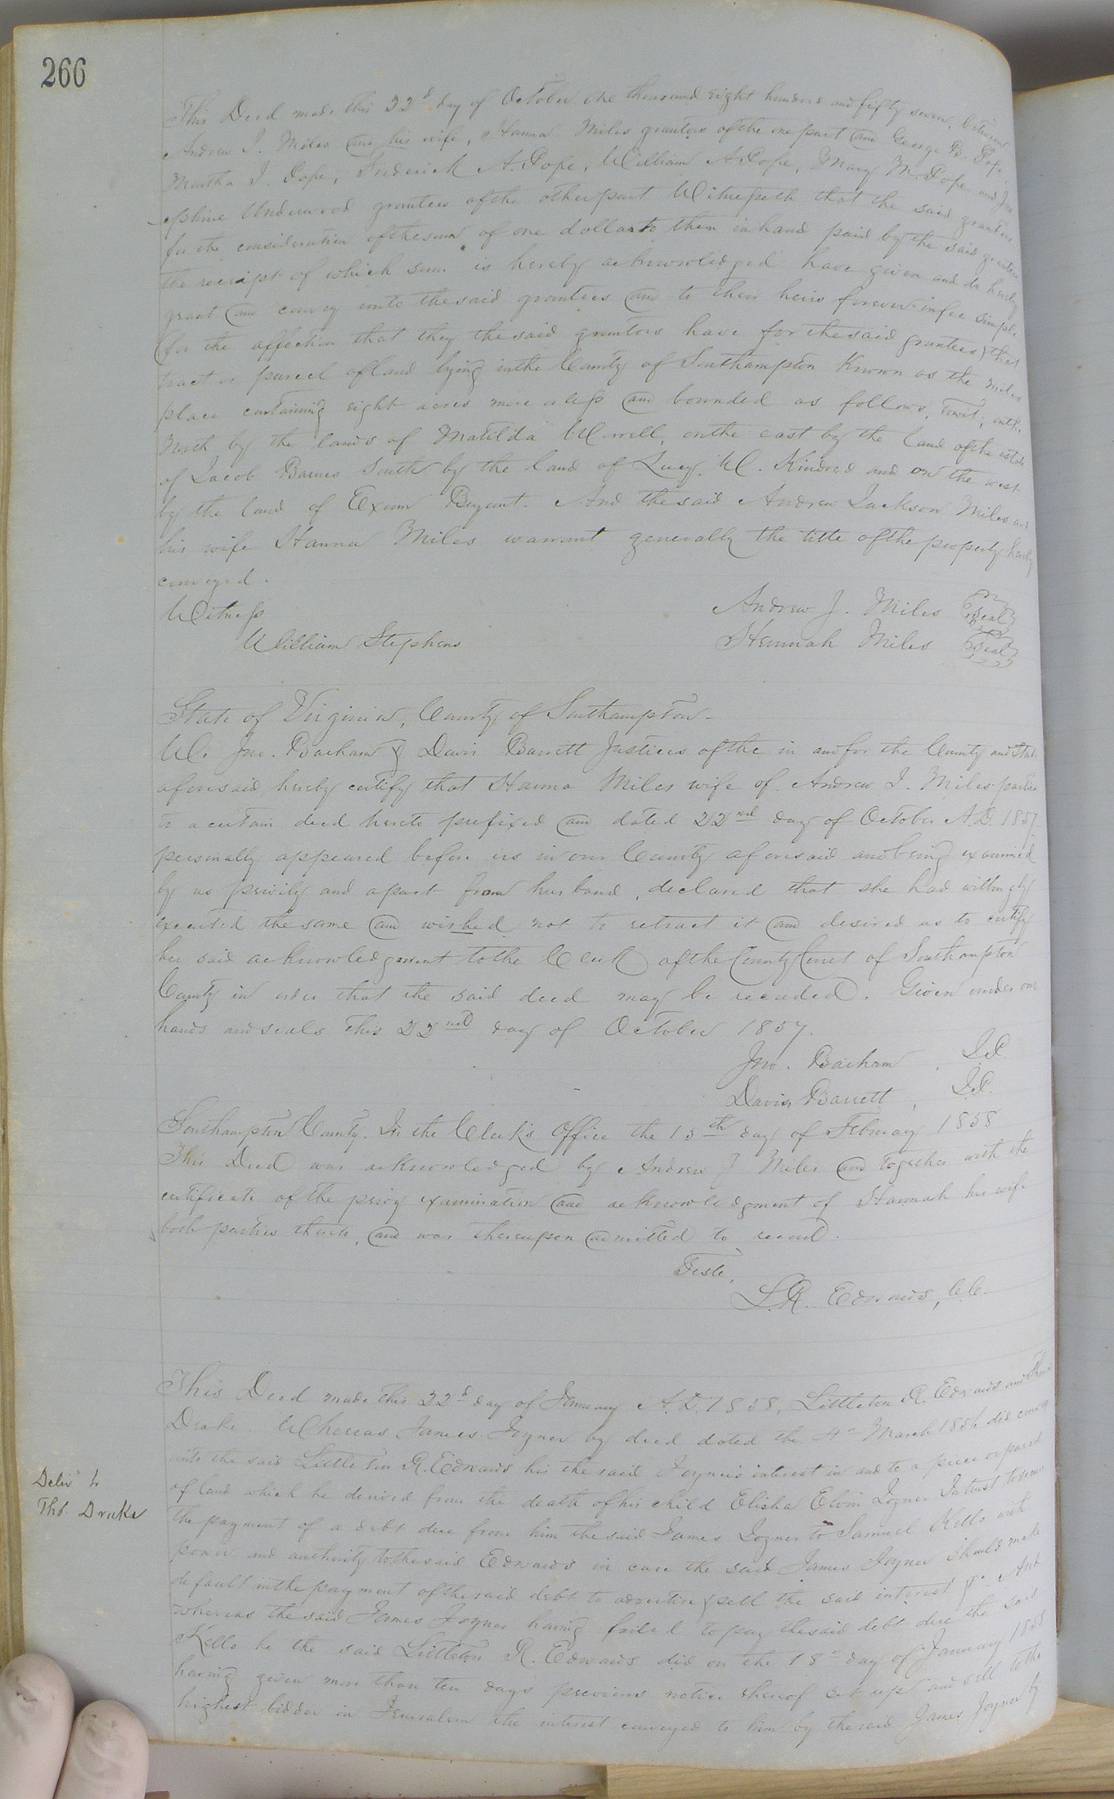 266
This Deed made this 22d day of October one thousand eight hundred and fifty seven, between
Andrew J. Miles and his wife, Hanna Miles grantors of the one part and George B. Pope,
Martha J. Pope, Frederick A. Pope, William A Pope, Mary M. Pope and Jos
ephine Underwood grantees of the other part Witnesseth that the said grantors
for the consideration of the sum of one dollar to them in hand paid by the said grantees
the receipt of which sum is hereby acknowledged have given and do hereby
grant and convey unto the said grantees and to their heirs forever in fee simple
(for the affection that they the said grantors have for the said grantees) that
tract or parcel of land lying in the County of Southampton Known as the Miles
place containing eight acres more or less and bounded as follows, towit, on the
North by the lands of Matilda Worrell, on the east by the land of the estate
of Jacob Barnes South by the land of Lucy W. Kindred and on the west
by the land of Exum Bryant. And the said Andrew Jackson Miles and
his wife Hanna Miles warrant generally the title of the property hereby
conveyed.
Witness
William Stephens
Andrew J. Miles Seal
Hannah Miles Seal
State of Virginia, County of Southampton.
We Jno. Barham & Davis Barrett Justices of the in and for the County and State
aforesaid hereby certify that Hanna Miles wife of Andrew J. Miles parties
to a certain deed hereto prefixed and dated 22nd day of October A.D. 1857,
personally appeared before us in our County aforesaid and being examined
by us privily and apart from husband, declared that she had willingly
executed the same and wished not to retract it and desired us to certify
her said acknowledgement to the Clerk of the County Court of Southampton
County in order that the said deed may be recorded. Given under our
hands and seals this 22nd day of October 1857.
Jno. Barham, J.P.
Davis Barrett, J.P.
Southampton County. In the Clerk's Office the 15th day of February 1858
This Deed was acknowledged by Andrew J Miles and together with the
certificate of the privy examination and acknowledgment of Hannah his wife
both parties thereto, and was thereupon admitted to record.
Teste,
L.R. Edwards, C.C.
This Deed made this 22d day of January A.D. 1858, Littleton R. Edwards and
Drake. Whereas James Joyner by deed dated the 4th March 1854 did convey
unto the said Littleton R. Edwards his the said Joyner's interest in and to a piece or parcel
of land which he derived from the death of his child Elisha Elvin Joyner In trust to secure
the payment of a debt due from him the said James Joyner to Samuel Kello with
power and authority to the said Edwards in case the said James Joyner should make
default in the payment of the said debt to advertise & sell the said interest &c. And
whereas the said James Joyner having failed to pay the said debt due the said
Kello he the said Littleton R. Edwards did on the 18th day of January 1858
having given more than ten days previous notice thereof set up and sell to the
highest bidder in Jerusalem the interest conveyed to him by the said James Joyner by
Delivd to
Ths. Drake